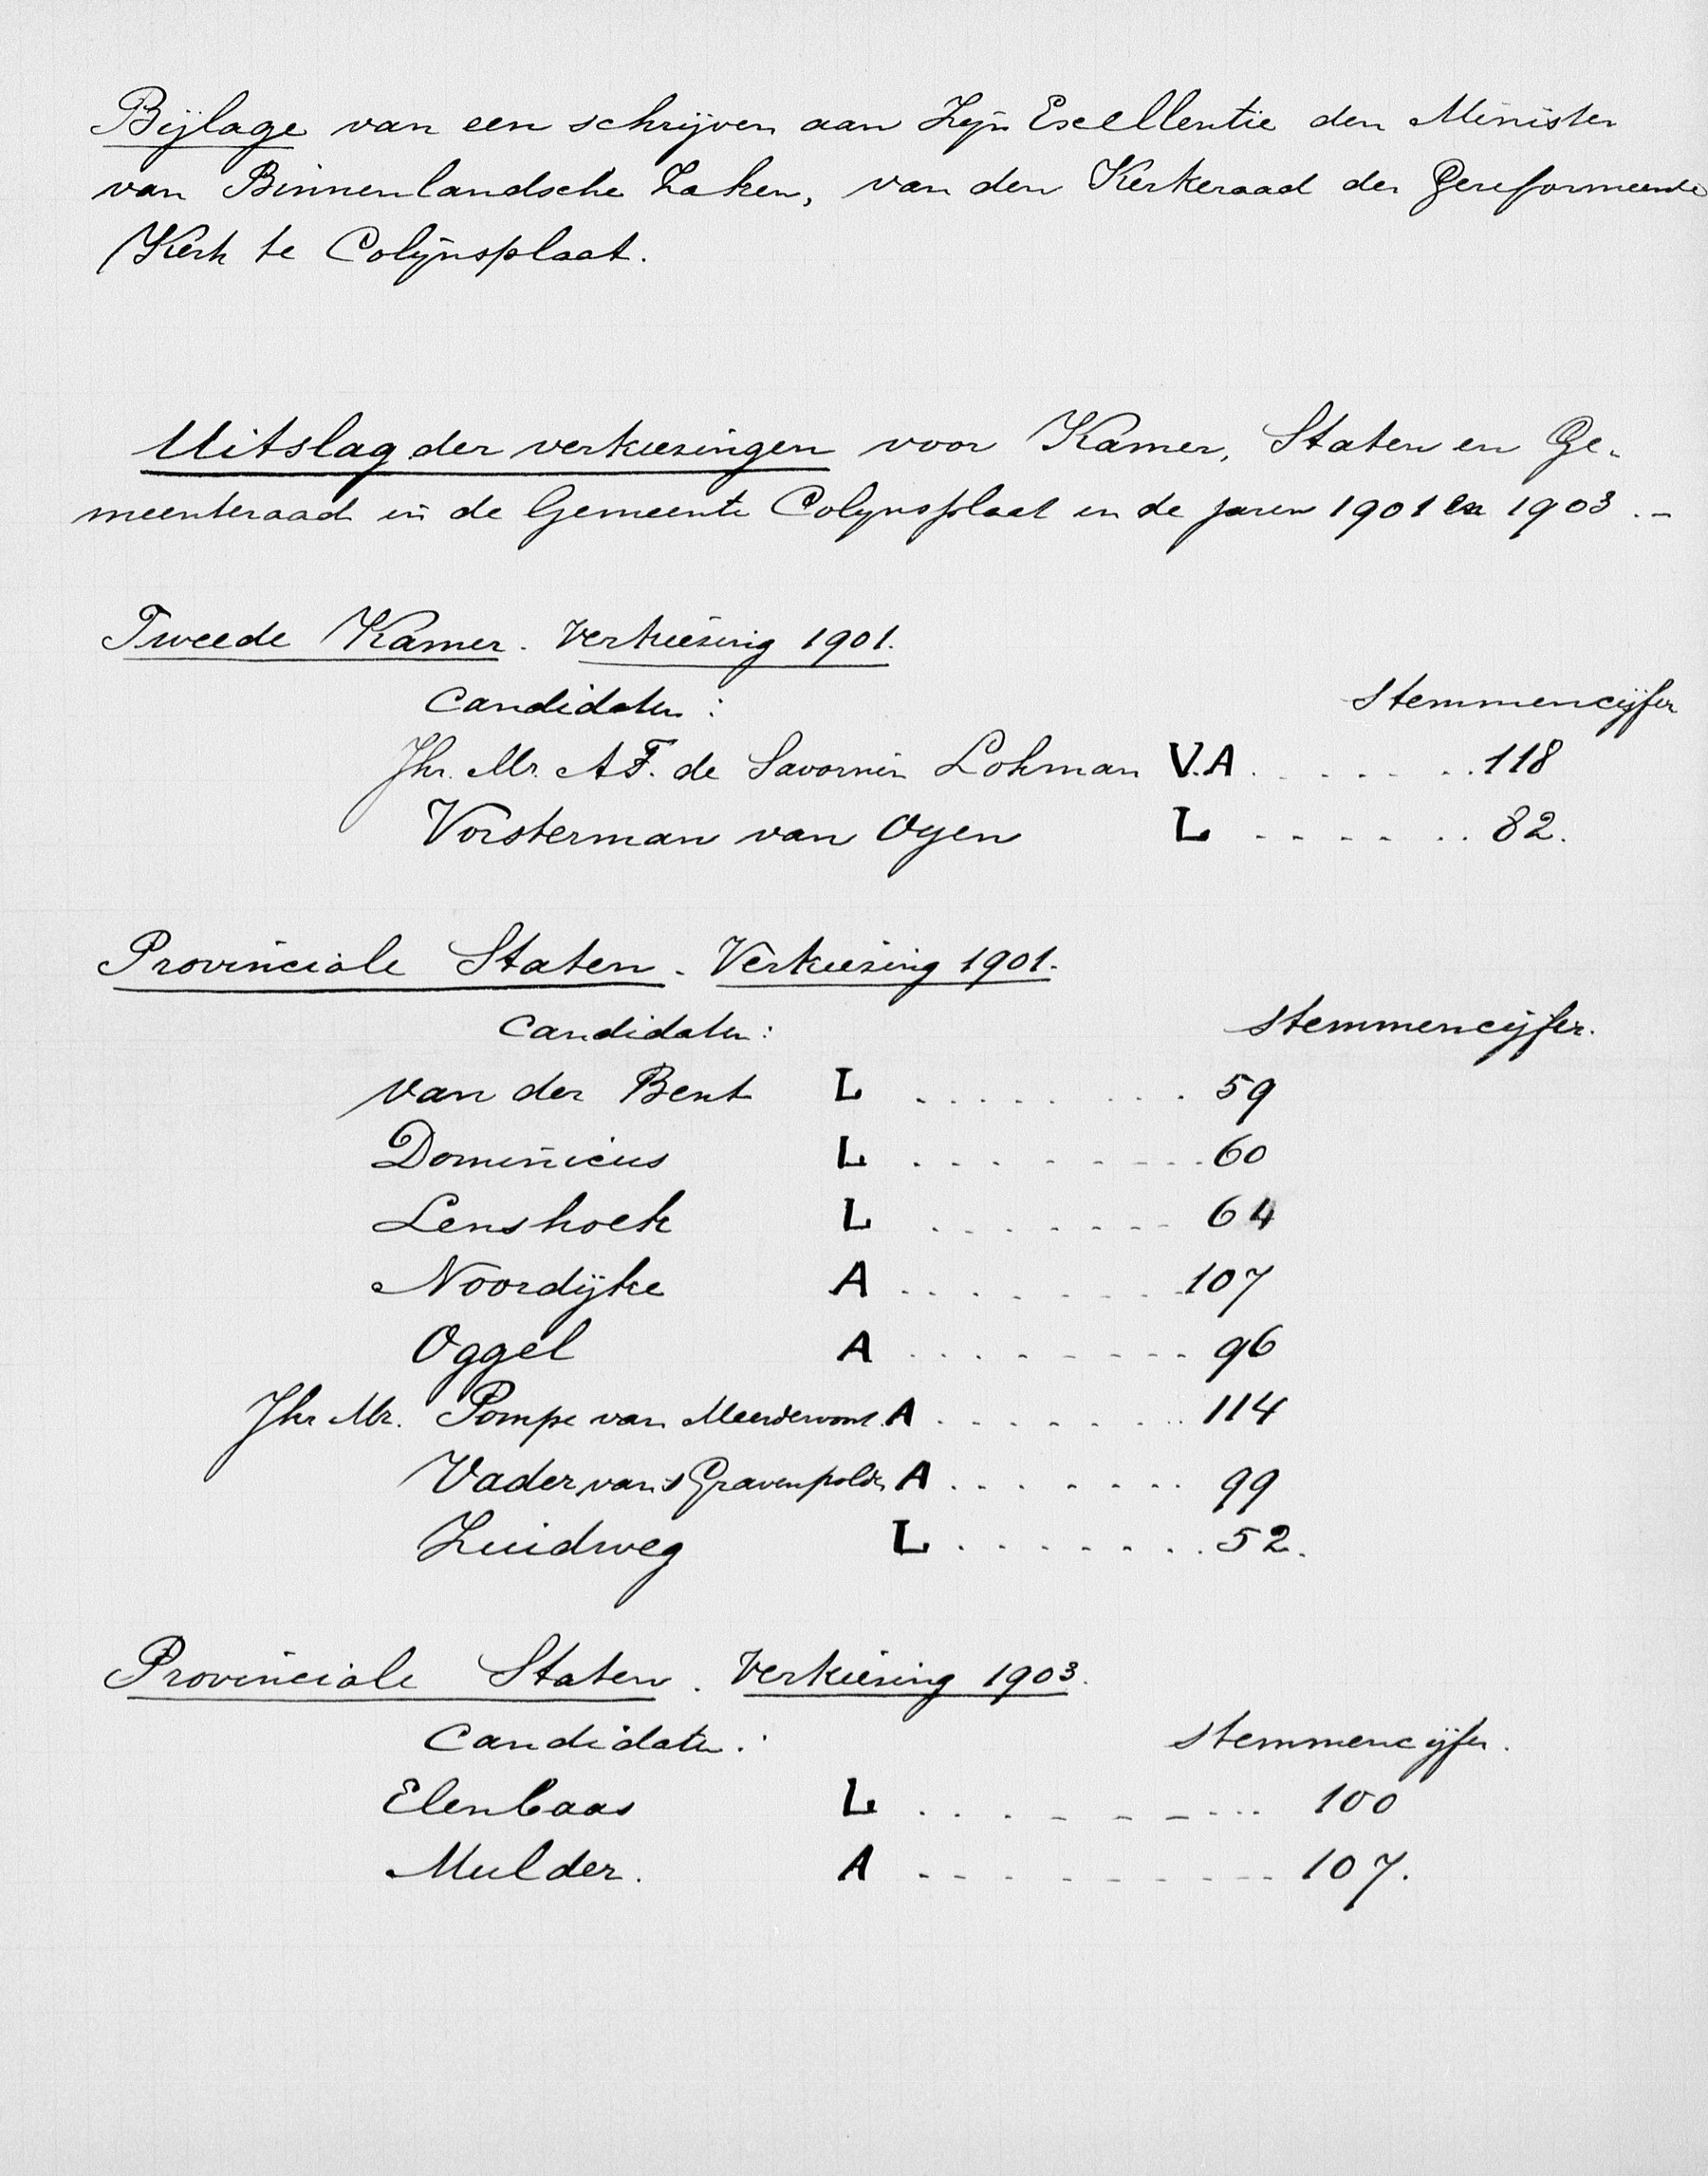 Bijlage van een schrijven aan Zijn Excellentie den Minister
van Binnenlandsche Zaken, van den Kerkeraad der Gereformeerde
Kerk te Colijnsplaat.
Uitslag der verkiezingen voor Kamer, Staten en Ge-
meenteraad in de Gemeente Colijnsplaat in de jaren 1901 en 1903.-
Tweede Kamer. Verkiezing 1901.
Candidaten: Stemmencijfer
Jhr. Mr. A.F. de Savornin Lohman V.A. . . . . . . 118
Vorsterman van Oyen L . . . . . . 82.
Provinciale Staten. Verkiezing 1901.
Candidaten: Stemmencijfer.
van der Bent L . . . . . . . . 59
Dominicus L . . . . . . . . 60
Lenshoek L . . . . . . . . 64
Noordijke A . . . . . . . . 107
Oggel A . . . . . . . . 96
Jhr Mr. Pompe van Meerdervoort. A . . . . . . . . 114
Vader van 's Gravenpolder A . . . . . . . 99
Zuidweg L . . . . . . . 52.
Provinciale Staten. Verkiezing 1903.
Candidaten: Stemmencijfer.
Elenbaas L . . . . . . . . . 100
Mulder. A . . . . . . . . . 107.